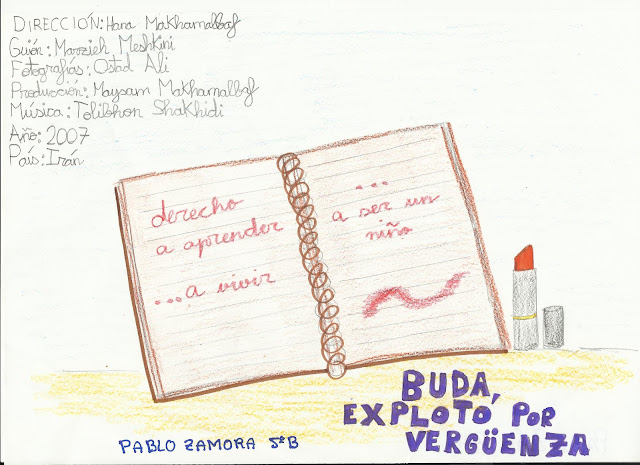 DIRECCIÓN: Hana Makhamalbaf
Guión: Marzieh Meshkini
Fotografías: Ostad Ali
Producción: Maysam Makhamalbaf
Música: Tolibhon Shakhidi
Año: 2007
País: Irán
derecho
a aprender
...a vivir
...
a ser un
niño
BUDA,
EXPLOTÓ POR
VERGÜENZA
PABLO ZAMORA 5ºB